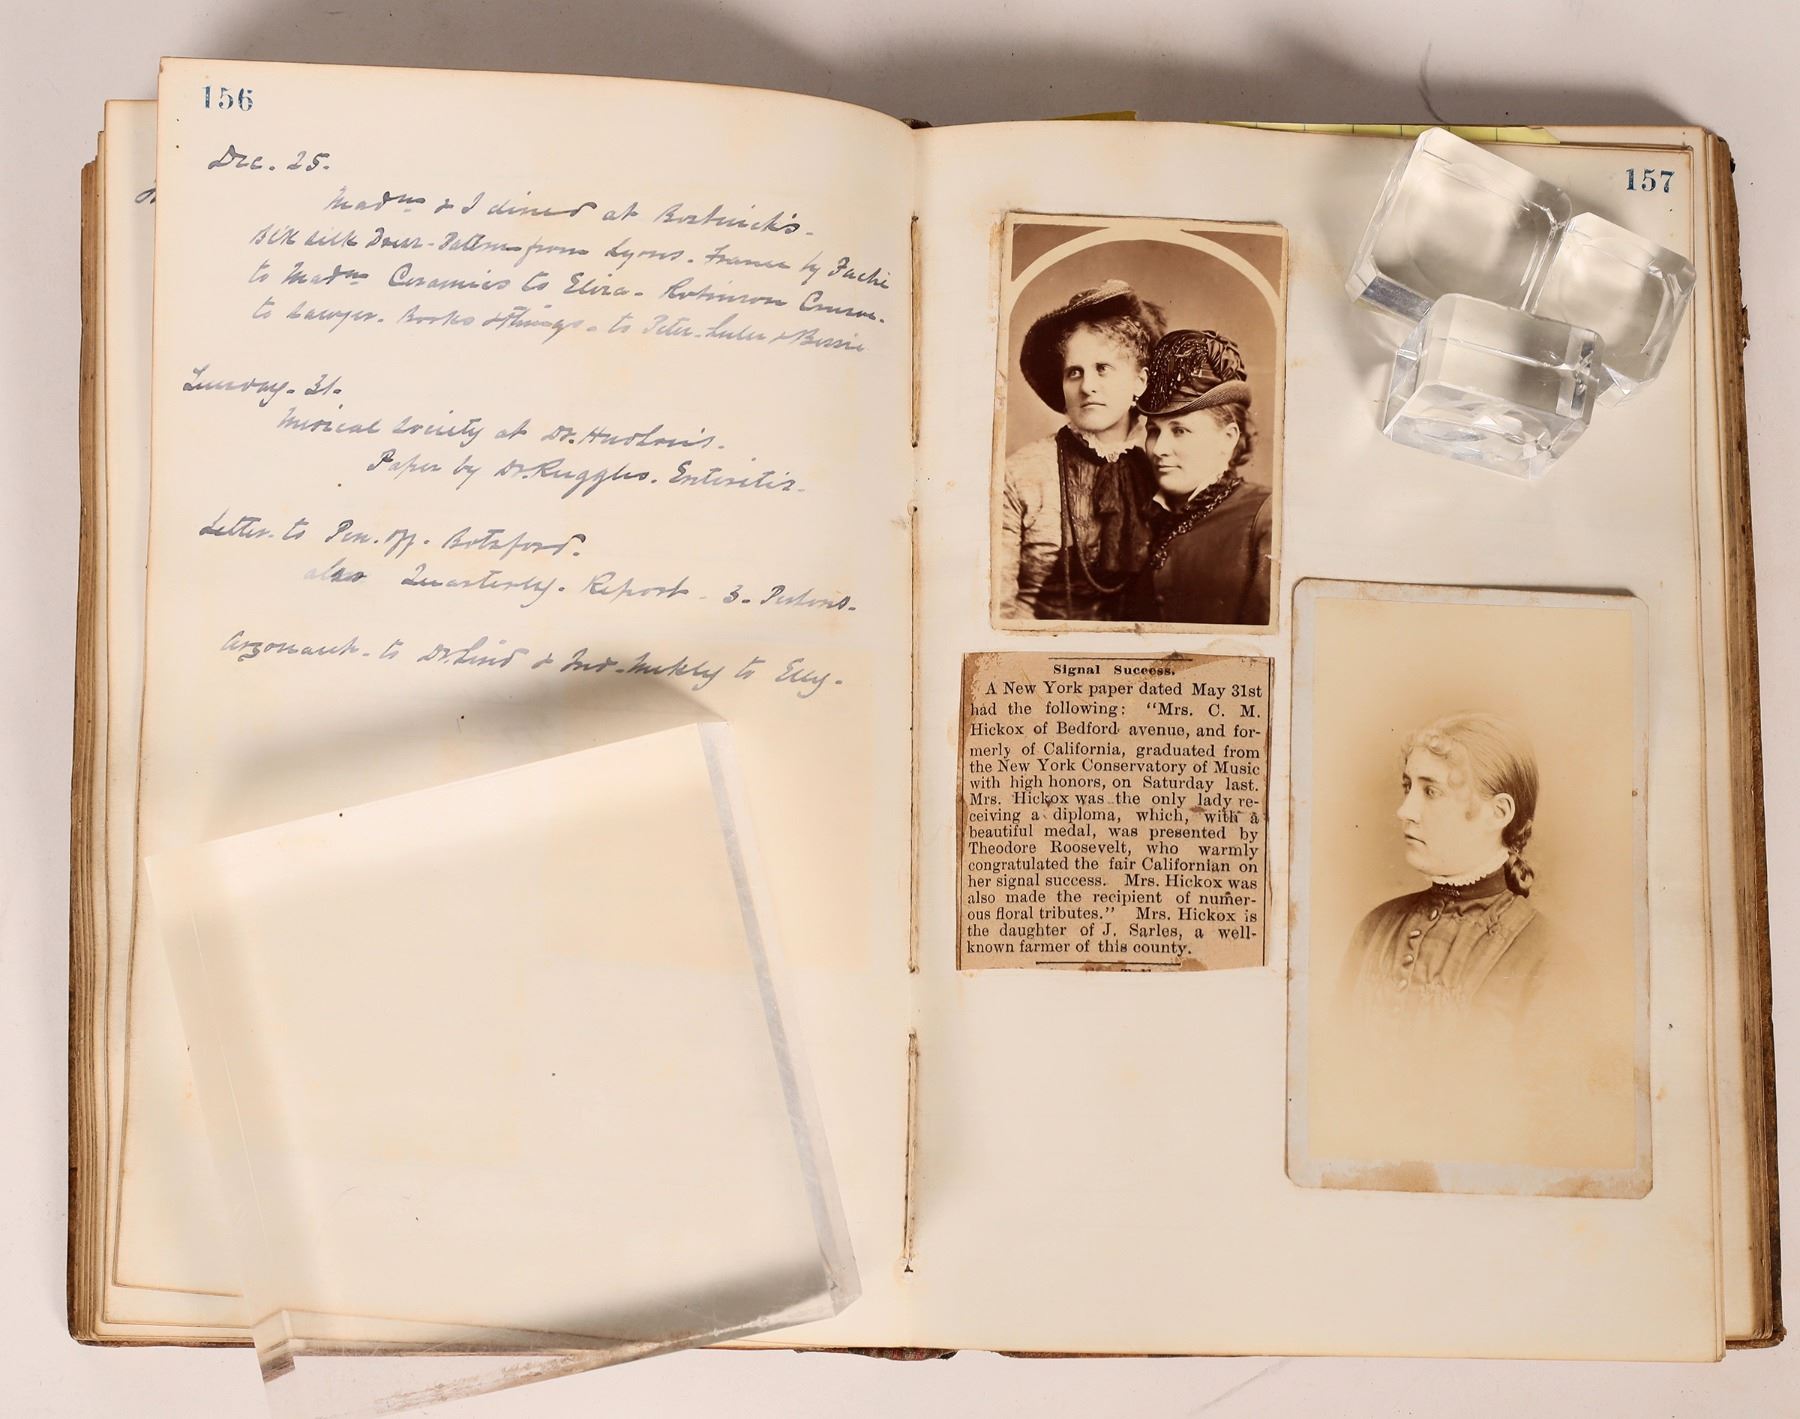 156
Dec. 25.
Madm & I dined at Bostwick's.
Blk silk Dress-Pattern from Lyons. France by
to Madm Ceramics to Eliza. Robinson Crusoe.
to Lawyer. Books & Things. to Peter. & Bessie
31.
Medical Society at Dr.
Paper by Dr. Ruggles. Enteritis.
Letter to Pen. off. Botsford.
also Quarterly. Report. 3.
Argonaut. to Dr. Lind & to Elly.
157
Signal Success.
A New York paper dated May 31st
had the following: “Mrs. C. M.
Hickox of Bedford avenue, and for-
merly of California, graduated from
the New York Conservatory of Music
with high honors, on Saturday last.
Mrs. Hickox was the only lady re-
ceiving a diploma, which, with a
beautiful medal, was presented by
Theodore Roosevelt, who warmly
congratulated the fair Californian on
her signal success. Mrs. Hickox was
also made the recipient of numer-
ous floral tributes.” Mrs. Hickox is
the daughter of J. Sarles, a well-
known farmer of this county.